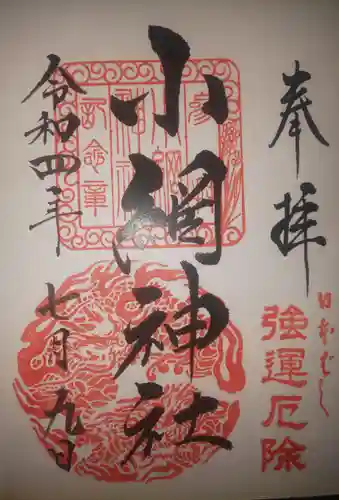 奉拝
日本ばし
強運厄除
小網神社
令和四年
七月九日